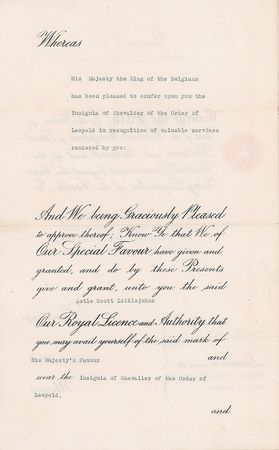 Whereas
His Majesty the King of the Belgians
has been pleased to confer upon you the
Insignia of Chevalier of the Order of
Leopold in recognition of valuable services
rendered by you;
And We being Graciously Pleased
to approve thereof; Know Ye that We of
Our Special Favour have given and
granted, and do by these Presents
give and grant, unto you the said
Astle Scott Littlejohns
Our Royal Licence and Authority that
you may avail yourself of the said mark of
His Majesty's Favour and
wear the Insignia of Chevalier of the Order of
Leopold,
and